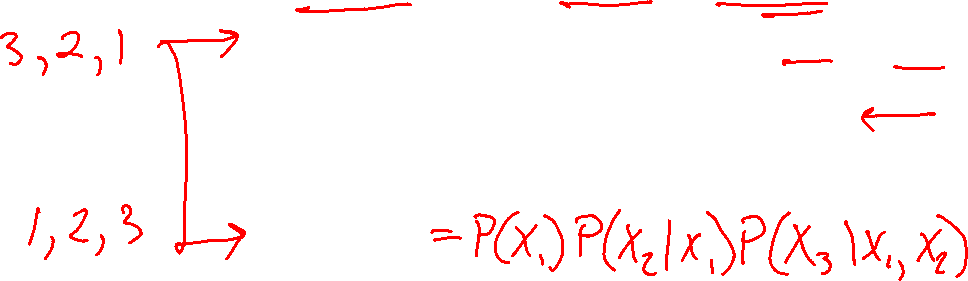 3,2,1
1,2,3 = P(X₁)P(X₂|X₁)P(X₃|X₁,X₂)